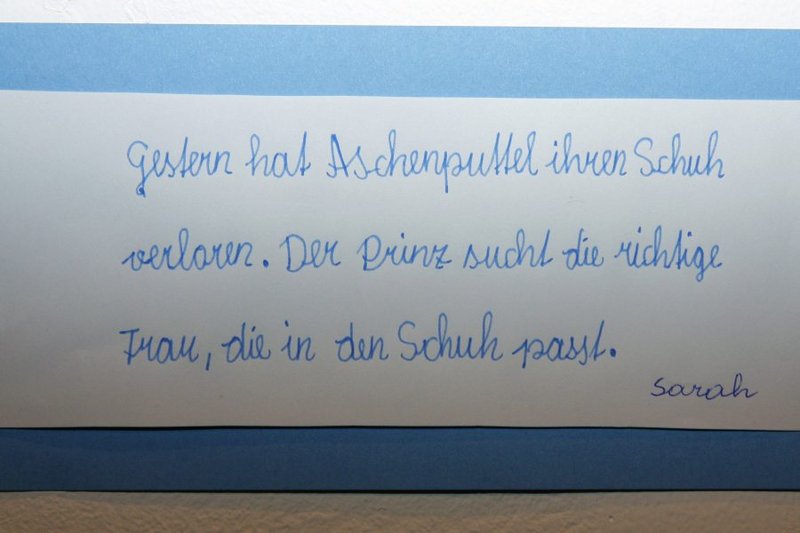 Gestern hat Aschenputtel ihren Schuh
verloren. Der Prinz sucht die richtige
Frau, die in den Schuh passt.
Sarah